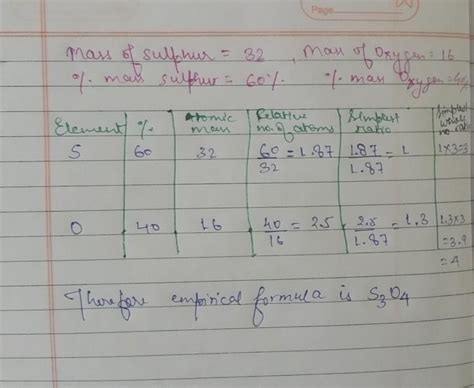 Page
Mass of sulphur = 32 , Mass of Oxygen = 16
% mass sulphur = 60% % mass Oxygen = 4%
Element % Atomic mass Relative no. of atoms Simplest ratio Simplest whole no. ratio
S 60 32 60/32 = 1.87 1.87/1.87 = 1 1x3=3
O 40 16 40/16 = 2.5 2.5/1.87 = 1.3 1.3x3
=3.9
=4
Therefore empirical formula is S3O4